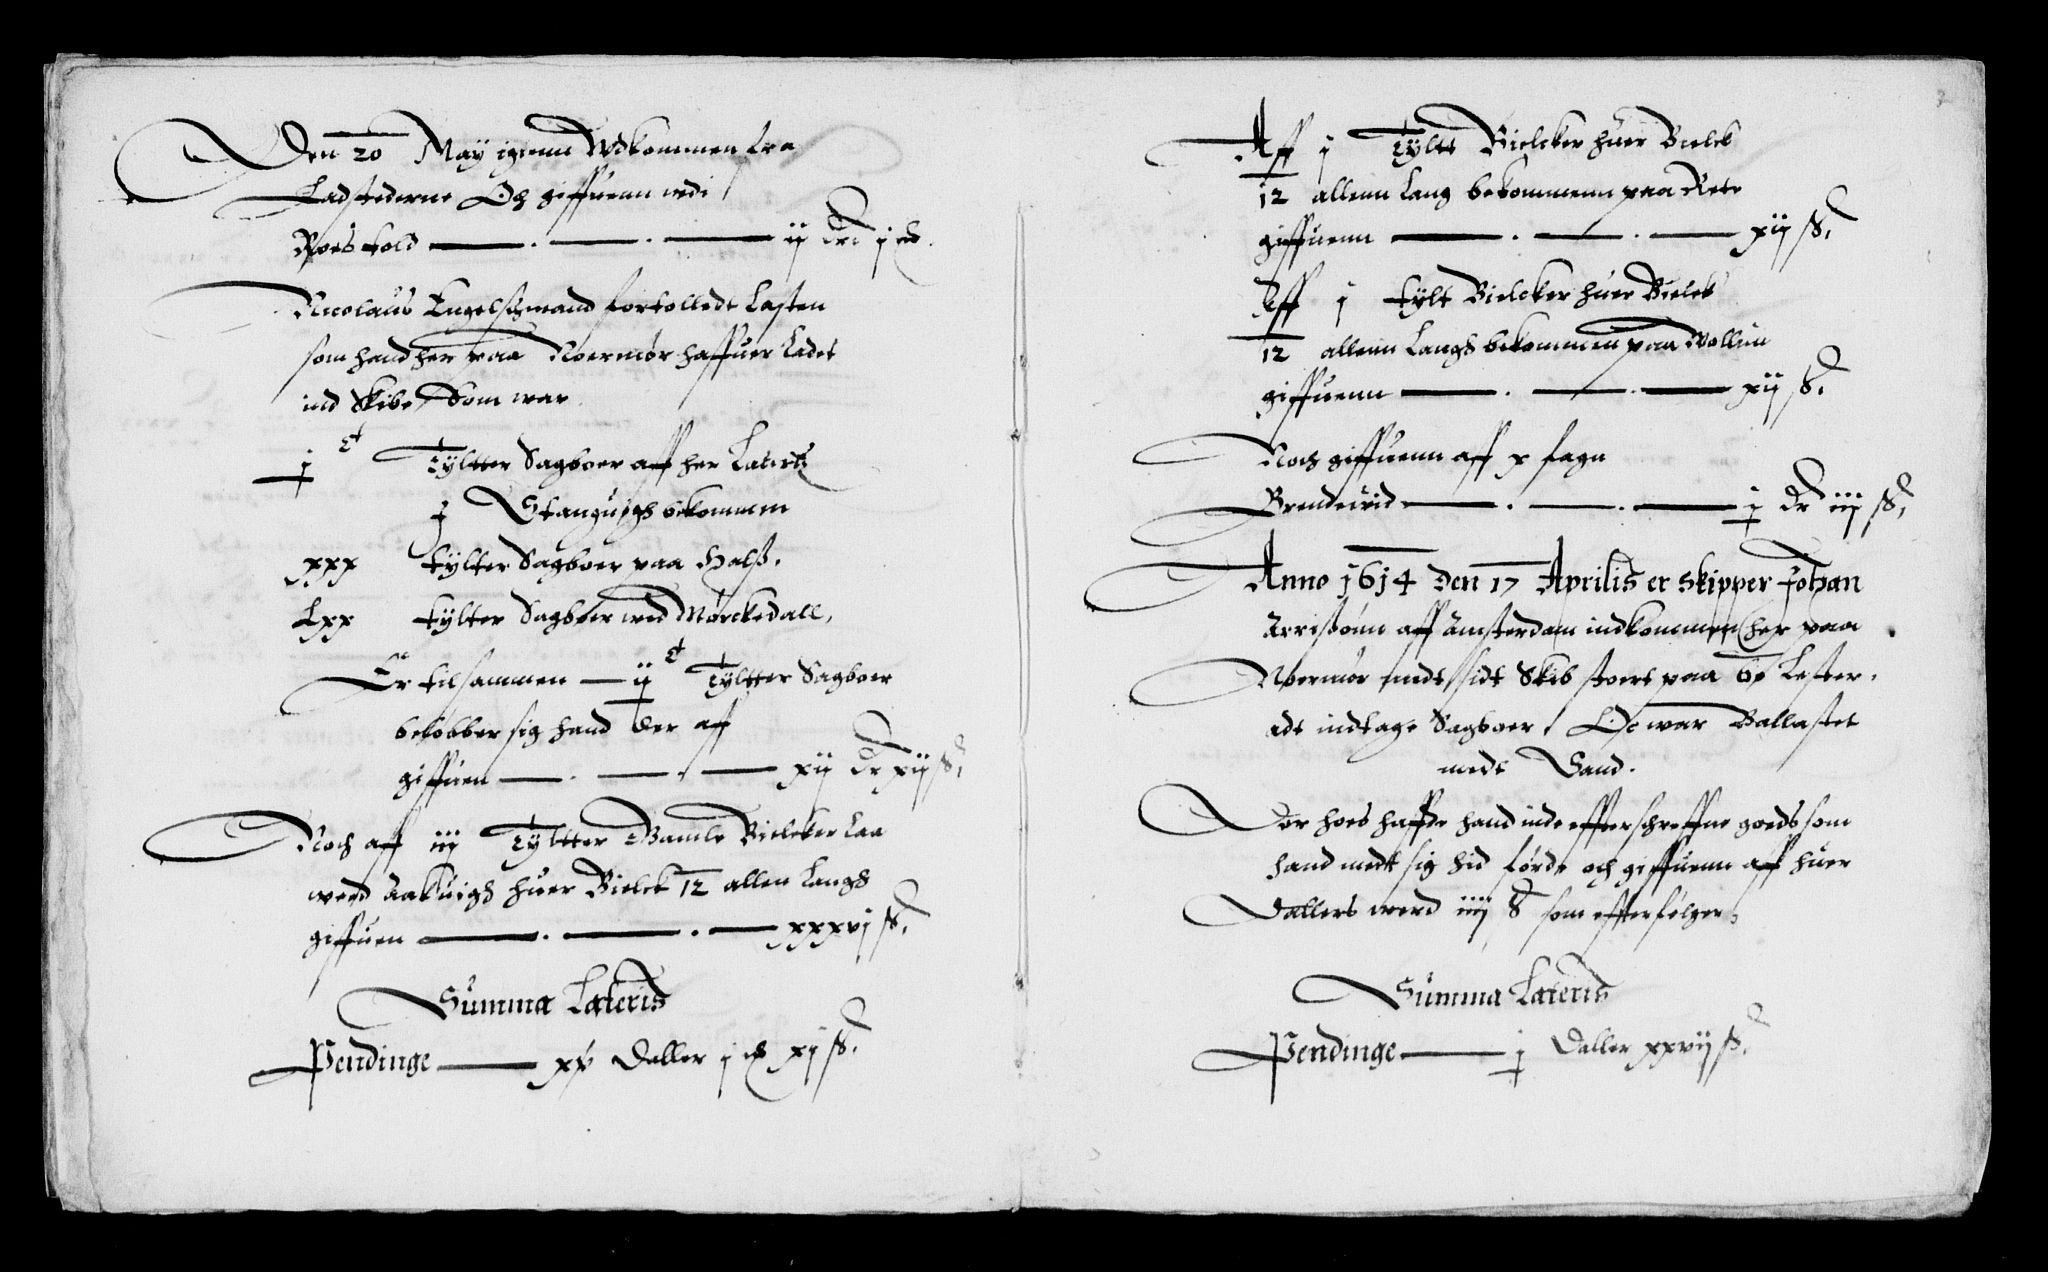 Den 20 May igienn Wdkommen fra
Ladstederne Och giffuenn udi
Roes told — . — . — ij Dr j
Nicolaus Engelschmand fortolledt Lasten
som hand her paa Noermør haffuer Ladet
ind Skibe, Som war
j C Tyltter Sagboer aff her Laurits
j Stanguighs bekommen
xxx tylter Sagboer paa Halsz.
Lxx tylter Sagboer wed Mørckedall,
Er tilsammen — ij C Tyltter Sagboer
beløbber sig hand der aff
giffuen — . — . — xij Dr xij ß.
Noch aff iij Tyltter Gamle Bielcker Laa
werd Aakuigs huer Bielck 12 allen Langs
giffuen — . — . — xxxvj ß.
Summa Lateris
Pendinge — xv Daller j xj ß.
2
Aff j Tyltt Bielcker huer Bielck
12 allenn Lang bekommenn paa Rete
giffuenn — . — . — xij ß.
Aff j tylt Bielcker huer Bielck
12 allenn Langs bekommen paa Wollun
giffuenn — . — . — xij ß.
Noch giffuenn aff x fagn
Brendeuid — . — . — j Dr iij ß,
Anno 1614 Den 17 Aprilis er skipper Johan
Arrissønn aff Amsterdam indkommen her paa
Noermør medt sidt Skib stoert paa 60 Lester.
adt indtage Sagboer, Oc war Ballastet
medt Sand.
Der hoes haffde hand inde effterschreffne goeds som
hand medt sig hid førde och giffuenn aff huer
Dallers werd iiij ß som effterfølger,
Summa Lateris
Pendinge — j Daller xxvij ß.